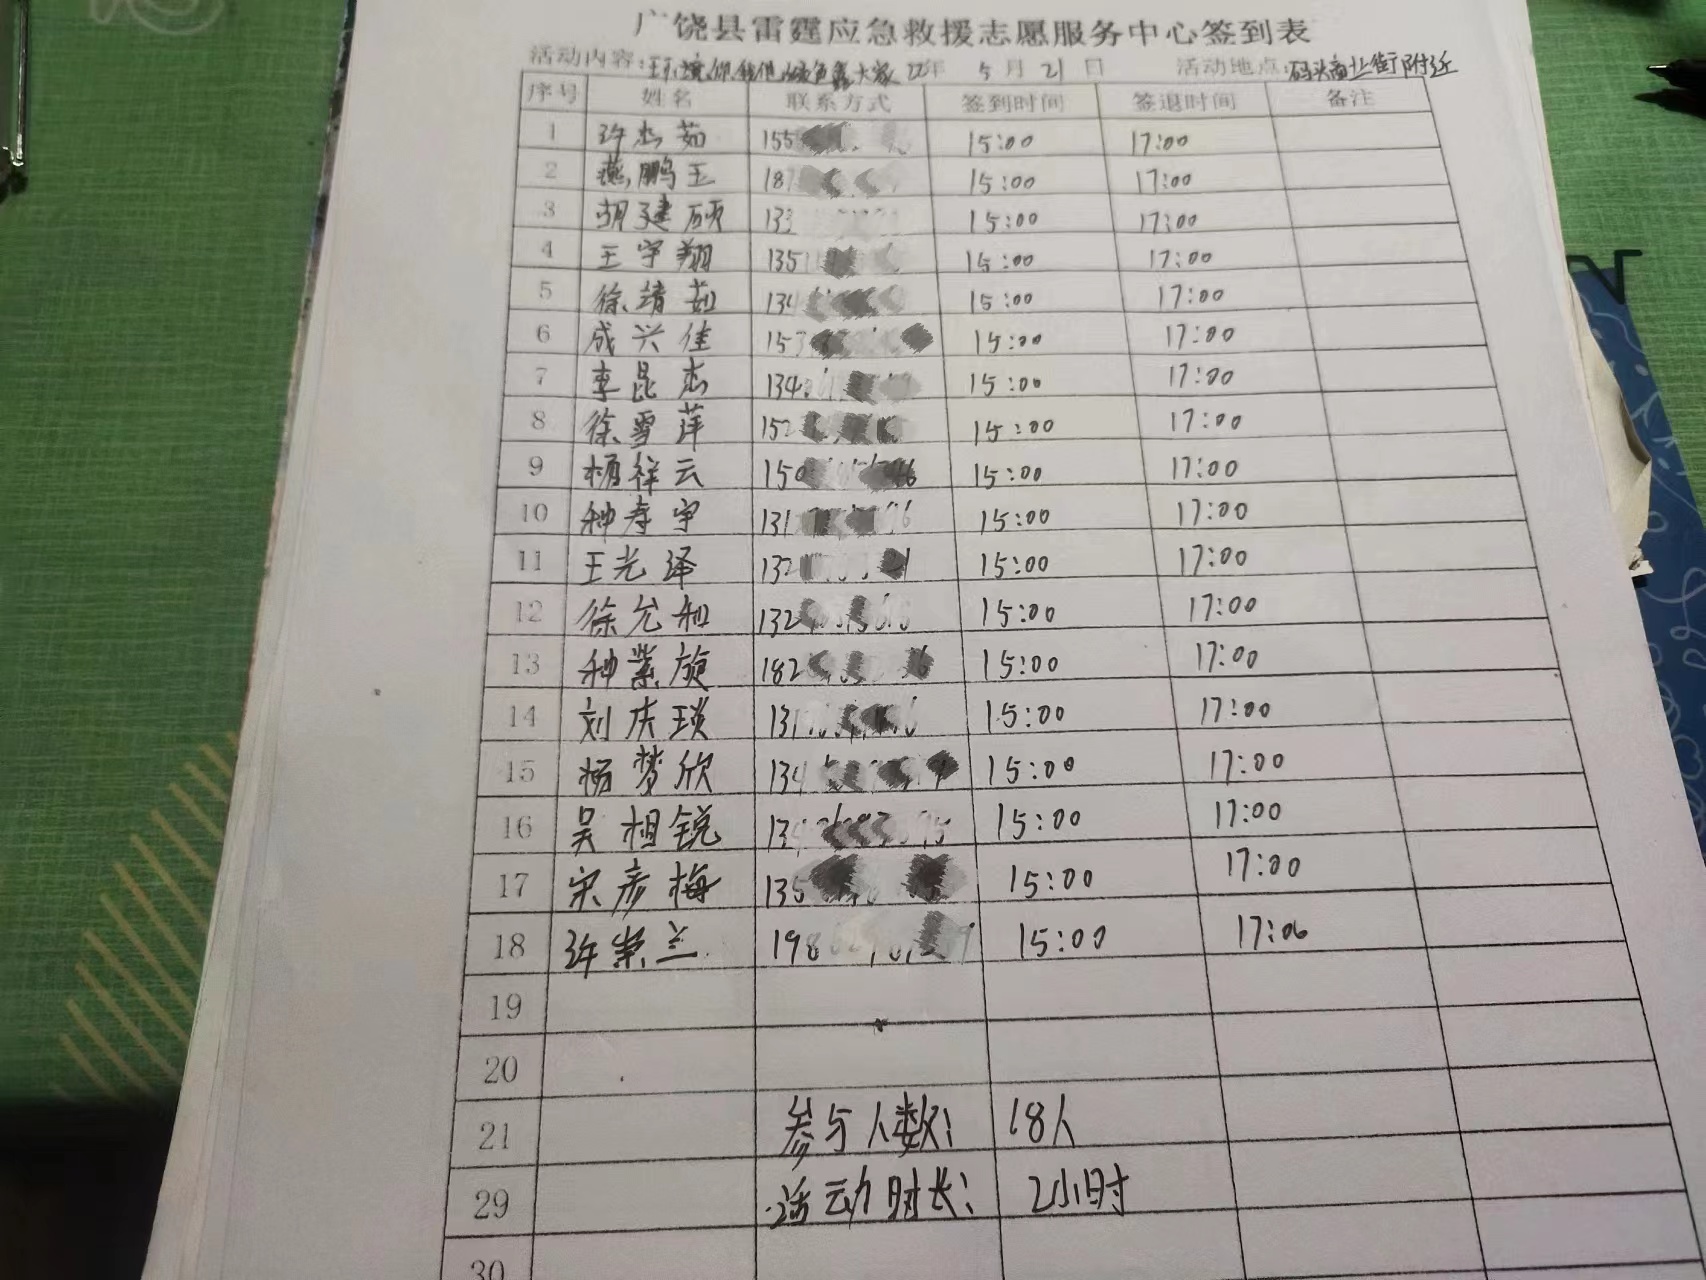 广饶县雷霆应急救援志愿服务中心签到表
活动内容: 22年 5月21日 活动地点:码头商业街附近
序号 姓名 联系方式 签到时间 签退时间 备注
1 许杰茹 155 15:00 17:00
2 燕鹏玉 187 15:00 17:00
3 胡建硕 133 15:00 17:00
4 王宇翔 135 15:00 17:00
5 徐靖茹 134 15:00 17:00
6 成兴佳 157 15:00 17:00
7 李昆杰 134 15:00 17:00
8 徐雪萍 152 15:00 17:00
9 杨祥云 150 15:00 17:00
10 种孝宇 131 15:00 17:00
11 王光泽 132 15:00 17:00
12 徐允和 132 15:00 17:00
13 种紫旋 182 15:00 17:00
14 刘庆瑛 131 15:00 17:00
15 杨梦欣 134 15:00 17:00
16 吴相锐 134 15:00 17:00
17 宋彦梅 135 15:00 17:00
18 许崇兰 198 15:00 17:00
19
20
21 参与人数: 18人
29 活动时长: 2小时
30